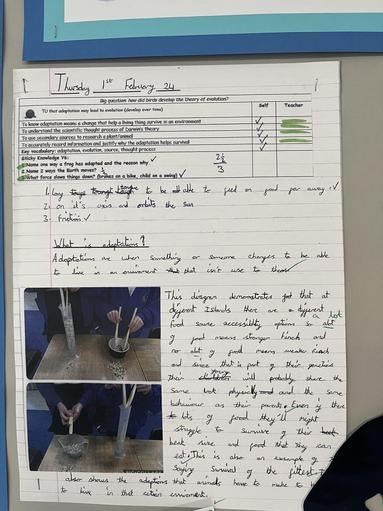 Thursday 1st February 24
Big question: how did birds develop the theory of evolution?
TU that adaptation may lead to evolution (develop over time)
Self Teacher
To know adaptation means a change that help a living thing survive in an environment
To understand the scientific thought process of Darwin's theory
To use secondary sources to research a plant/animal
To accurately record information and justify why the adaptation helps survival
Key vocabulary: adaptation, evolution, source, thought process
Sticky Knowledge Y6:
1. Name one way a frog has adapted and the reason why
2. Name 2 ways the Earth moves?
3. What force slows things down? (brakes on a bike, child on a swing)
2½
3
1. long tongue to be able to feed on food far away.
2. on it's axis and orbits the sun
3. Friction
What is adaptations?
Adaptations are when something or someone changes to be able
to live in an enviroment that isn't use to them
This diagram demonstrates that at
different Islands there are different
food source accessibility options so a lot
of food means stronger finch and
no alot of food means weaker finch
and since that is part of their genetics
their will probably share the
same look physically and the same
behaviour as their parents. Even if there
lots of food they'll might
struggle to survive if their
beak size and food that they can
eat. This is also an example of
saying survival of the fittest. It
also shows the adaptions that animals have to make to
to live in that certain enviroment.